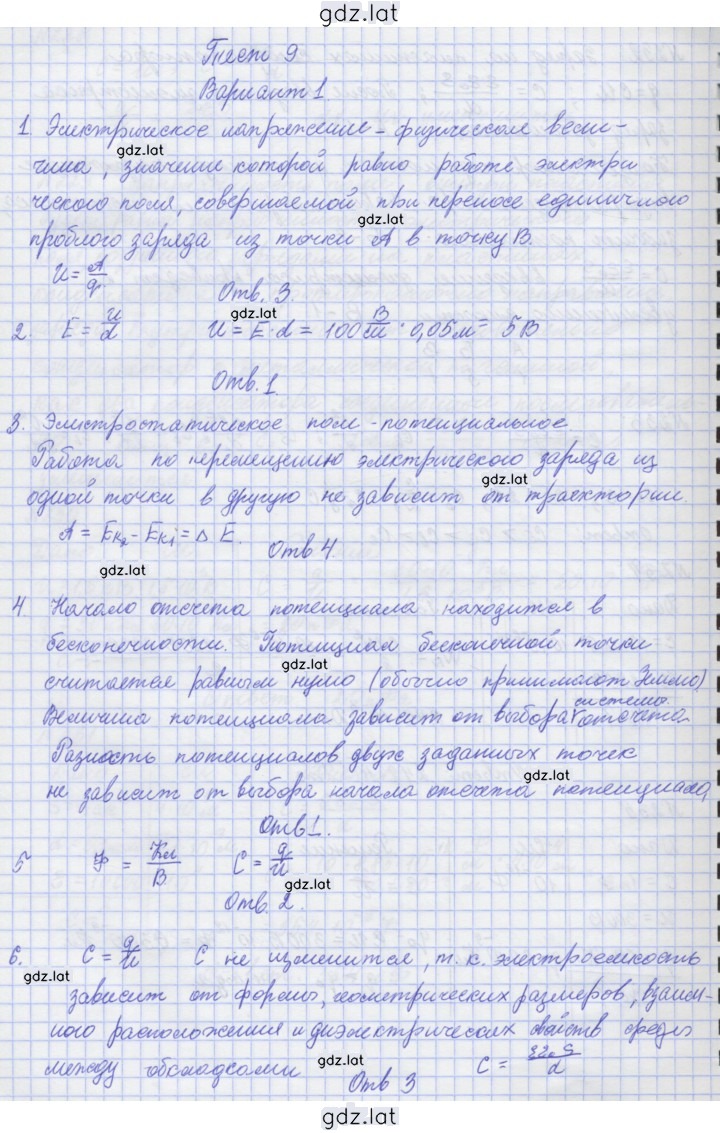 gdz.lat
Тест 9
Вариант 1
1. Электрическое напряжение - физическая вели-
gdz.lat
чина, значение которой равно работе электри
ческого поля, совершаемой при переносе единичного
gdz.lat
пробного заряда из точки А в точку В.
U = A/q
Отв. 3.
gdz.lat
2. E = U/d U = E·d = 100 В/м · 0,05м = 5В
Отв. 1.
3. Электростатическое поле - потенциальное
Работа по перемещению электрического заряда из
gdz.lat
одной точки в другую не зависит от траектории.
A = Eк₂ - Eк₁ = Δ E. Отв 4.
gdz.lat
4. Начало отсчета потенциала находится в
бесконечности. Потенциал бесконечной точки
gdz.lat
считается равным нулю (обычно принимают Землю)
системы
Величина потенциала зависит от выбора отсчета.
Разность потенциалов двух заданных точек
gdz.lat
не зависит от выбора начала отсчета потенциала,
Отв 1.
5 Ф = Кл/В C = q/U
gdz.lat
Отв. 2.
6. C = q/U C не изменится, т.к. электроемкость
gdz.lat
зависит от формы, геометрических размеров, взаим-
ного расположения и диэлектрических свойств среды
между обкладками gdz.lat C = εε₀S/d
Отв 3
gdz.lat